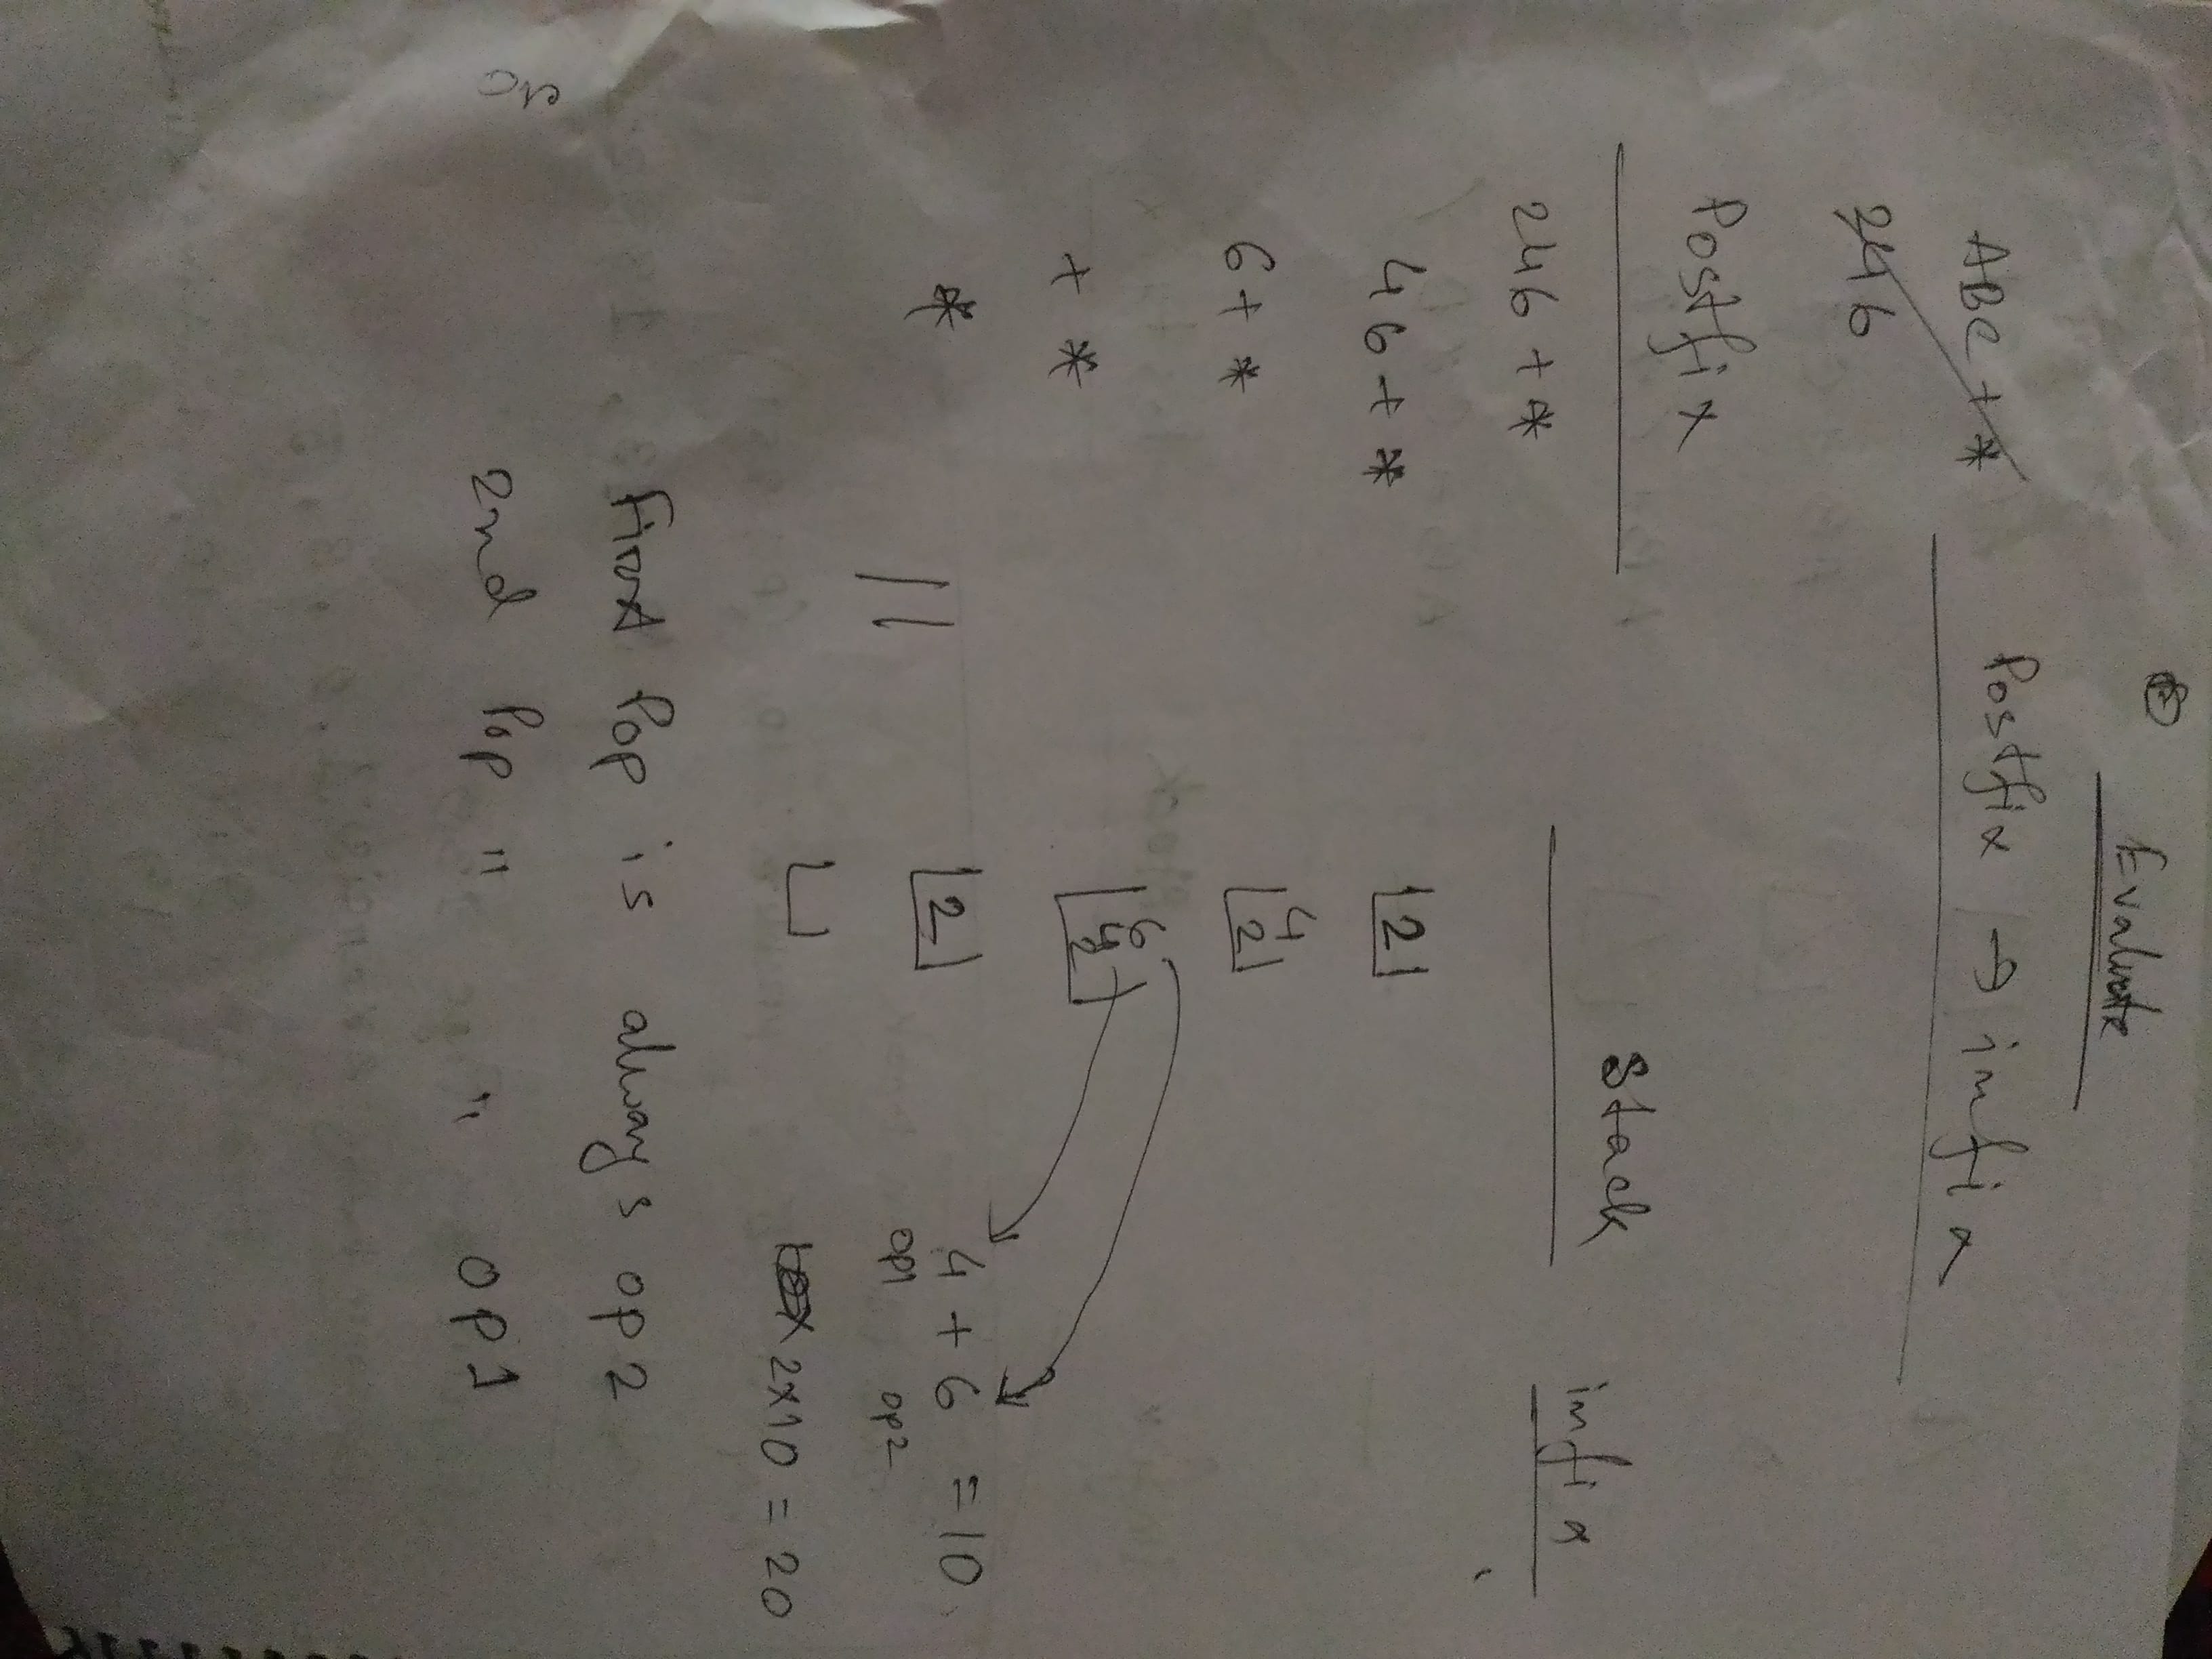 Evaluate
Postfix → infix
ABC + *
246
Postfix
Stack
infix
246 + *
46 + * 2
4
6 + * 2
6
4
+ * 2
* 2 4 + 6 = 10
op1 op2
2x10 = 20
First Pop is always op2
2nd Pop " " op1
or